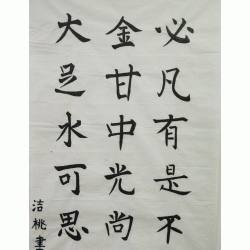 必凡有是不
金甘中光尚
大足水可思
洁桃書